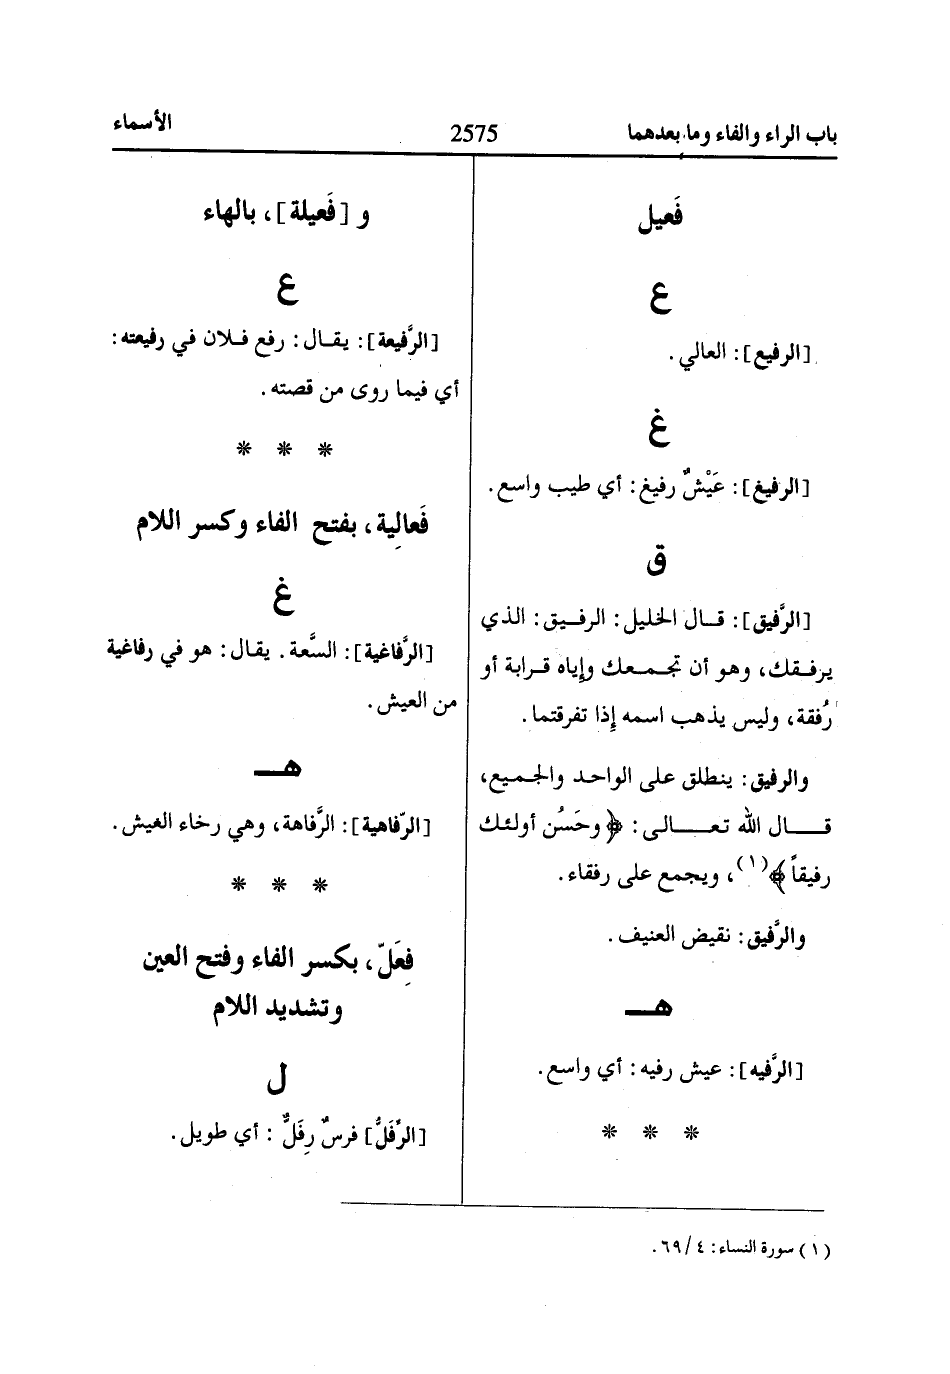 باب الراء والفاء وما بعدهما
2575
الأسماء
فَعيل
ع
[الرفيع]: العالي.
غ
[الرفيغ]: عَيْشٌ رفيغ: أي طيب واسع.
ق
[الرَّفيق]: قال الخليل: الرفيق: الذي
يرفقك، وهو أن تجمعك وإياه قرابة أو
رُفقة، وليس يذهب اسمه إذا تفرقتما.
والرفيق: ينطلق على الواحد والجميع،
قال الله تعالى: ﴿وحَسُن أولئك
رفيقاً﴾(١)، ويجمع على رفقاء.
والرَّفيق: نقيض العنيف.
هـ
[الرَّفيه]: عيش رفيه: أي واسع.
* * *
و [فَعيلة]، بالهاء
ع
[الرَّفيعة]: يقال: رفع فلان في رفيعته:
أي فيما روى من قصته.
* * *
فَعالِية، بفتح الفاء وكسر اللام
غ
[الرَّفاغية]: السَّعة. يقال: هو في رفاغية
من العيش.
هـ
[الرّفاهية]: الرَّفاهة، وهي رخاء العيش.
* * *
فِعَلّ، بكسر الفاء وفتح العين
وتشديد اللام
ل
[الرِّفَلُّ] فرسٌ رِفَلٌّ: أي طويل.
(١) سورة النساء: ٤/ ٦٩.